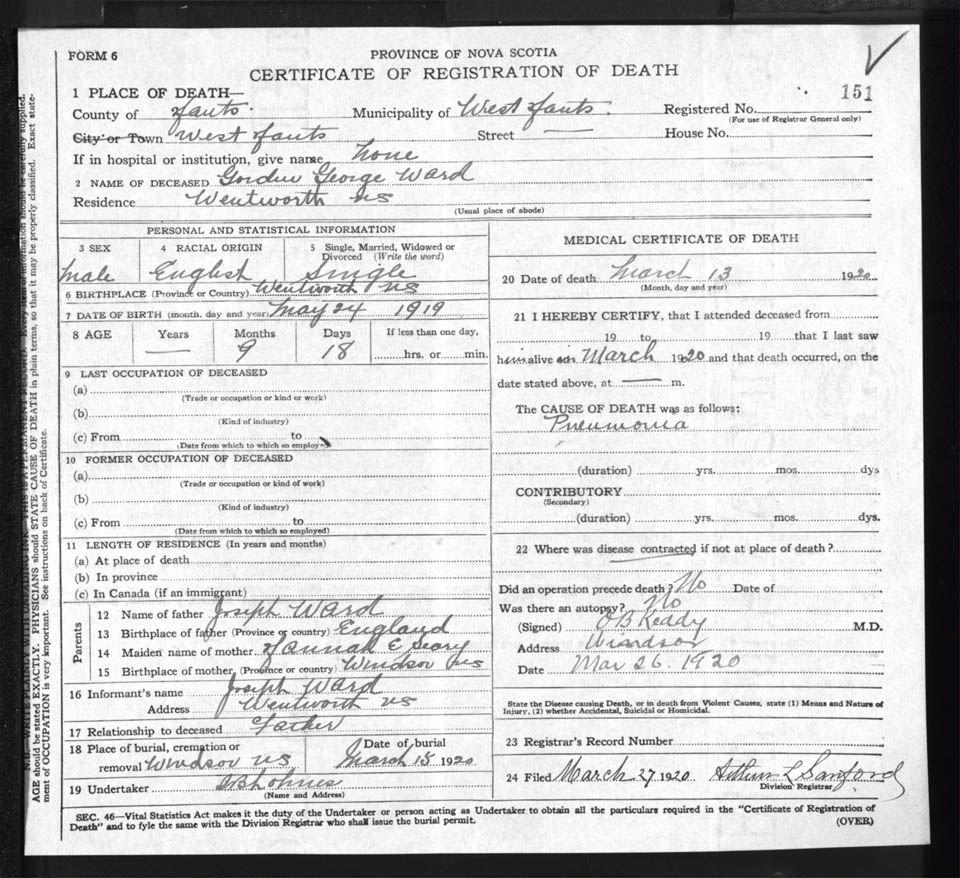 FORM 6
PROVINCE OF NOVA SCOTIA
CERTIFICATE OF REGISTRATION OF DEATH
151
1 PLACE OF DEATH—
County of Hants Municipality of West Hants. Registered No.
(For use of Registrar General only)
City or Town West Hants Street — House No.
If in hospital or institution, give name none
2 NAME OF DECEASED George Ward
Residence Wentworth NS
(Usual place of abode)
PERSONAL AND STATISTICAL INFORMATION
3 SEX 4 RACIAL ORIGIN 5 Single, Married, Widowed or Divorced (Write the word)
Male English Single
6 BIRTHPLACE (Province or Country) Wentworth NS
7 DATE OF BIRTH (month, day and year) May 24 1919
8 AGE Years Months Days If less than one day,
— 9 18 hrs. or min.
9 LAST OCCUPATION OF DECEASED
(a)
(Trade or occupation or kind or work)
(b)
(Kind of industry)
(c) From to
(Date from which to which so employ
10 FORMER OCCUPATION OF DECEASED
(a)
(Trade or occupation or kind of work)
(b)
(Kind of industry)
(c) From to
(Date from which to which so employed)
11 LENGTH OF RESIDENCE (In years and months)
(a) At place of death
(b) In province
(c) In Canada (if an immigrant)
Parents
12 Name of father Joseph Ward
13 Birthplace of father (Province or country) England
14 Maiden name of mother Hannah E
15 Birthplace of mother, (Province or country) Windsor NS
16 Informant's name Joseph Ward
Address Wentworth NS
17 Relationship to deceased Father
18 Place of burial, cremation or Date of burial
removal Windsor NS March 15 1920
19 Undertaker
(Name and Address)
MEDICAL CERTIFICATE OF DEATH
20 Date of death March 13 1920
(Month, day and year)
21 I HEREBY CERTIFY, that I attended deceased from
19 to 19 that I last saw
him alive on March 1920 and that death occurred, on the
date stated above, at — m.
The CAUSE OF DEATH was as follows:
Pneumonia
(duration) yrs. mos. dys
CONTRIBUTORY
(Secondary)
(duration) yrs. mos. dys.
22 Where was disease contracted if not at place of death?
Did an operation precede death? No Date of
Was there an autopsy? No
(Signed) O B Keddy M.D.
Address Windsor
Date Mar 26. 1920
State the Disease causing Death, or in death from Violent Causes, state (1) Means and Nature of
Injury, (2) whether Accidental, Suicidal or Homicidal.
23 Registrar's Record Number
24 Filed March 27 1920 Arthur L Sanford
Division Registrar
SEC. 46—Vital Statistics Act makes it the duty of the Undertaker or person acting as Undertaker to obtain all the particulars required in the "Certificate of Registration of
Death" and to fyle the same with the Division Registrar who shall issue the burial permit.
(OVER)
AGE should be stated EXACTLY. PHYSICIANS should STATE CAUSE OF DEATH in plain terms, so that it may be properly classified. Exact state-
ment of OCCUPATION is very important. See instructions on back of Certificate.